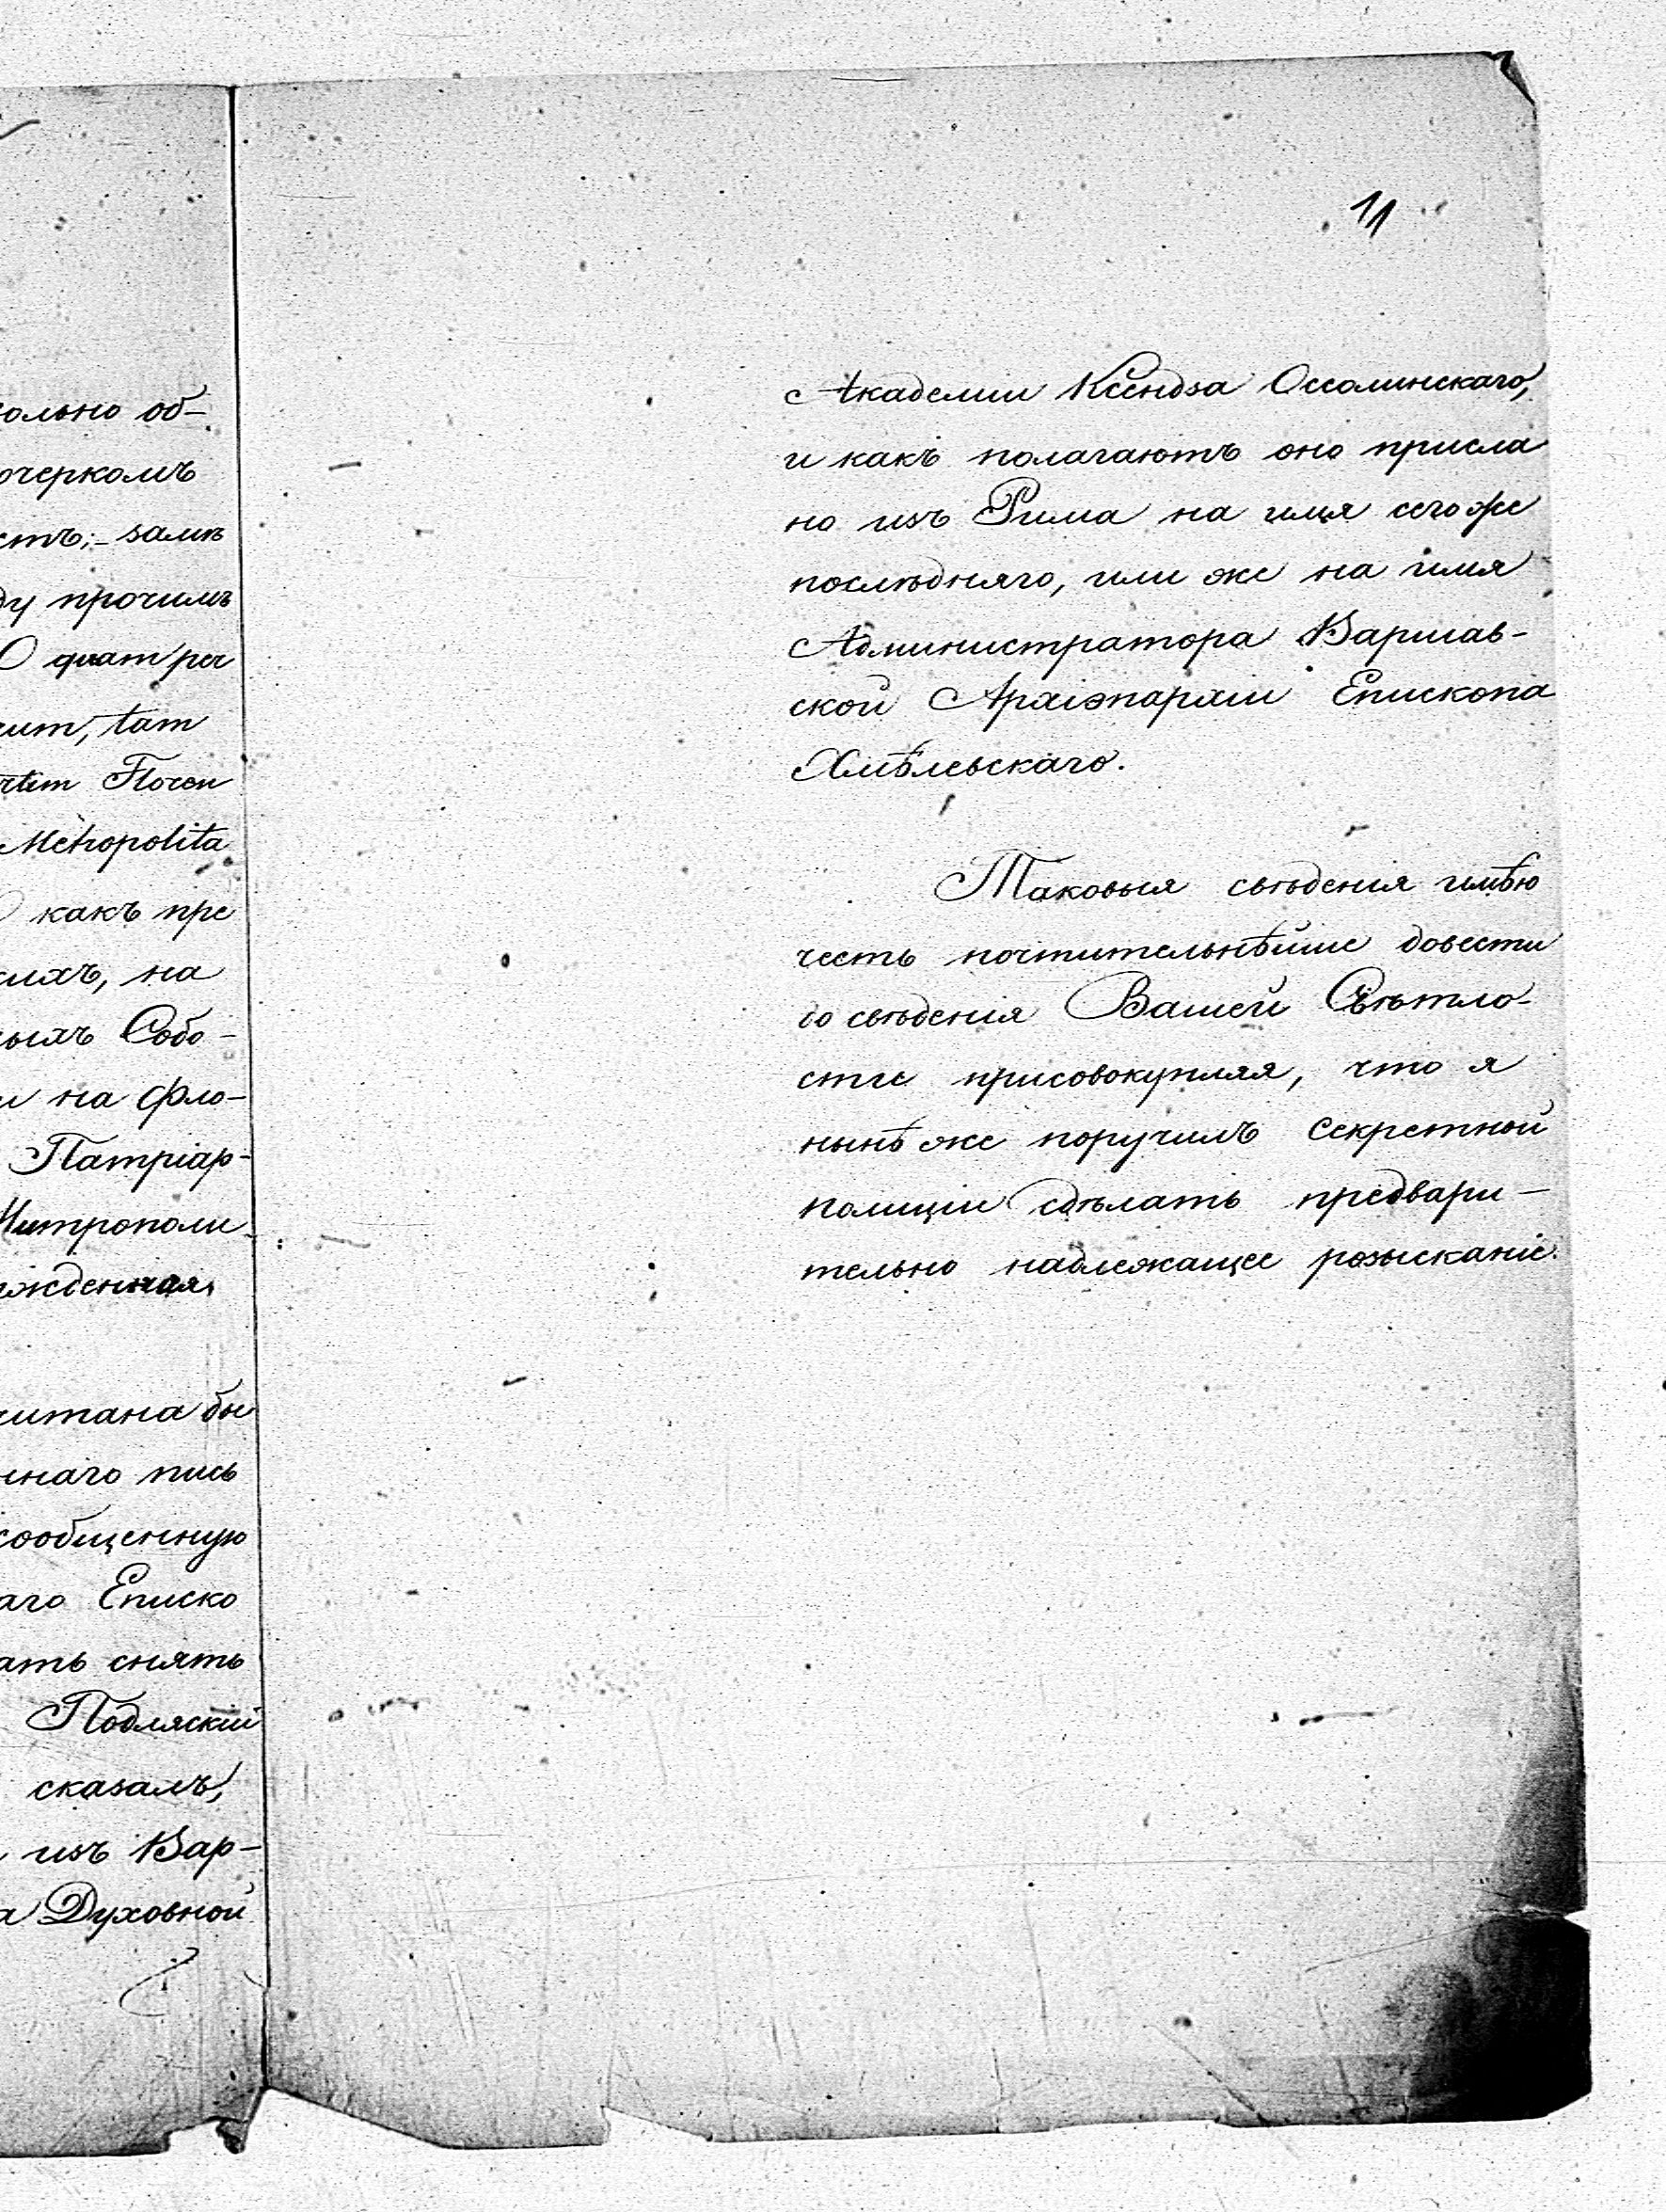 ольно об-
очеркомъ
сть;- замѣ
ду прочимъ
O quam per
um, tam
rtim Floren
Metropolita
какъ пре
ихъ, на
ныхъ Собо-
и на Фло-
Патріар-
Митрополи
жденная,
читана бы
ннаго пись
сообщенную
аго Еписко
ать снять
Подляскій
сказалъ,
изъ Вар-
а Духовной
11
Академіи Ксендза Оссолинскаго,
и какъ полагаютъ оно присла
но изъ Рима на имя сего же
послѣдняго, или же на имя
Администратора Варшав-
ской Архіэпархіи Епископа
Хмѣлевскаго.
Таковыя свѣдѣнія имѣю
честь почтительнѣйше довести
до свѣдѣнія Вашей Свѣтло-
сти присовокупляя, что я
нынѣ же поручилъ секретной
полиціи сдѣлать предвари-
тельно надлежащее розысканіе.